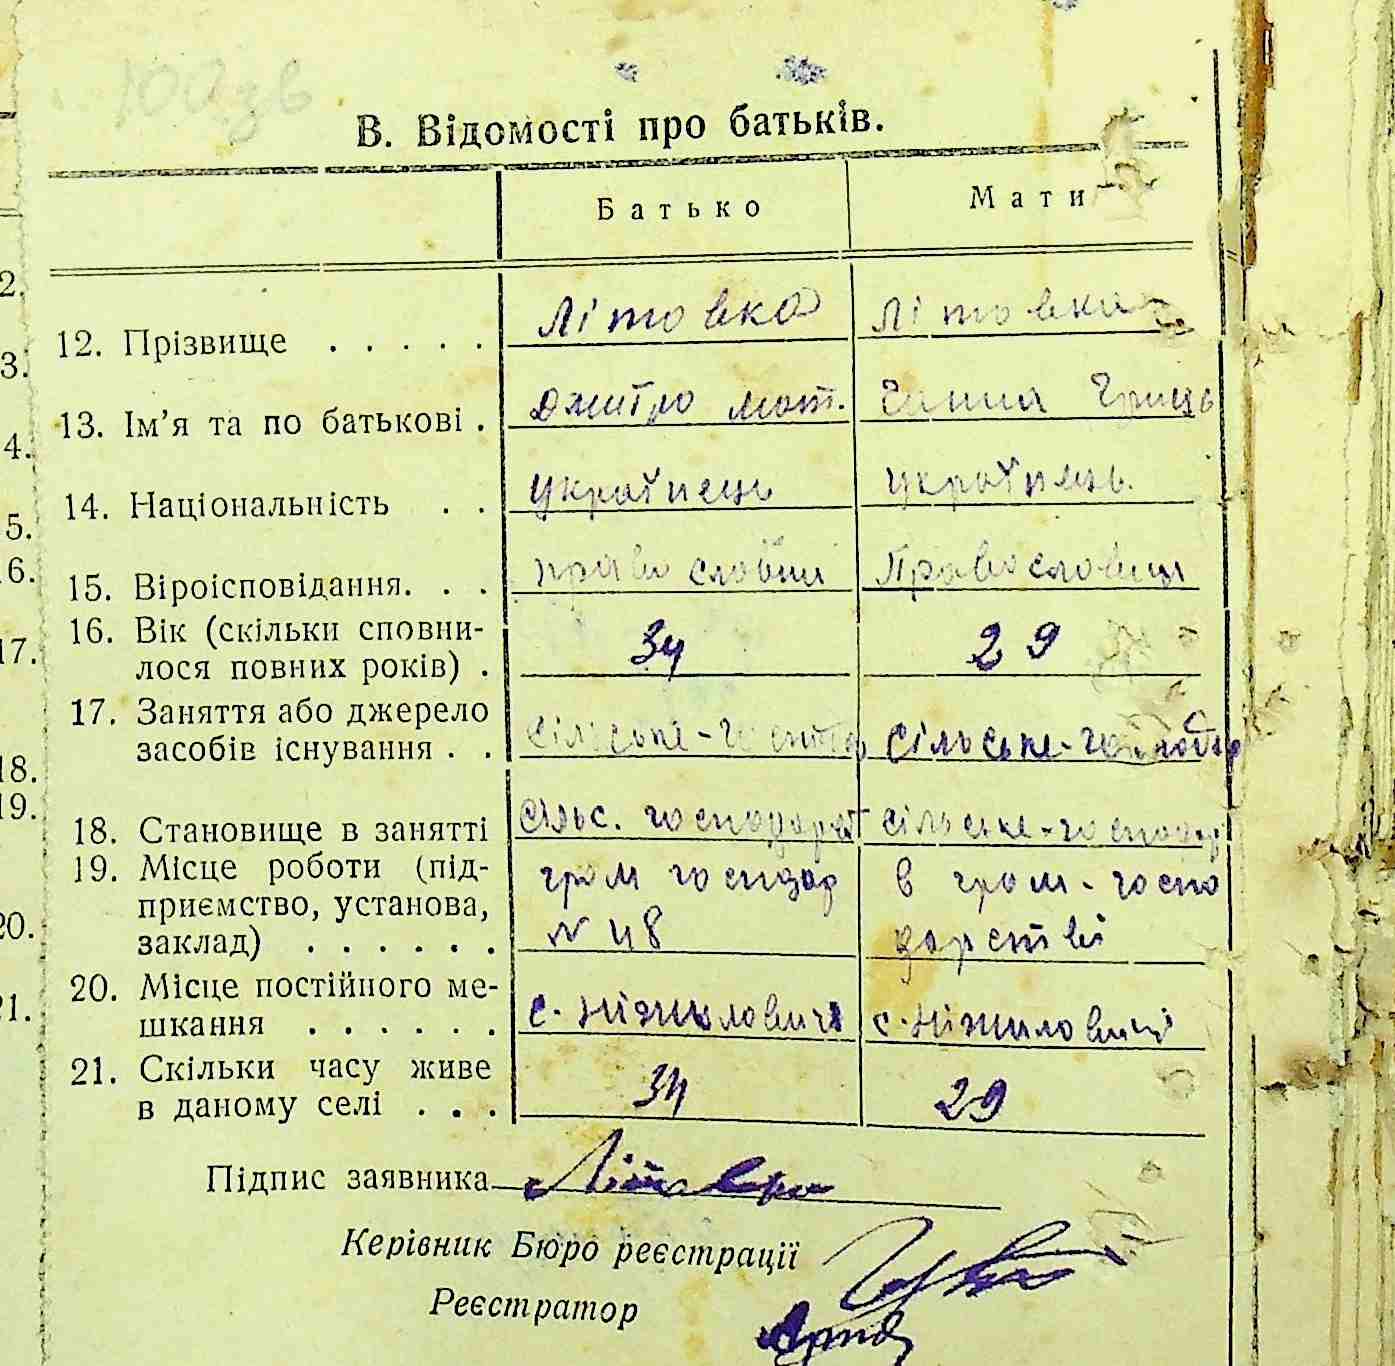 В. Відомості про батьків.
Батько Мати
12. Прізвище . . . . . Літовка Літовка
13. Ім’я та по батькові . Дмитро мот. Ганна Гриць
14. Національність . . Українець українець
15. Віроісповідання. . . православни Православна
16. Вік (скільки сповни-
лося повних років) . 34 29
17. Заняття або джерело
засобів існування . . сільське-господар сільське-господар
18. Становище в занятті сільс. господарст сільське-господар
19. Місце роботи (під- гром господар в гром-госпо
приємство, установа,
заклад) . . . . . . N 48 дарстві
20. Місце постійного ме-
шкання . . . . . . с. Ніжиловичі с. Ніжиловичі
21. Скільки часу живе
в даному селі . . . 34 29
Підпис заявника Літовка
Керівник Бюро реєстрації
Реєстратор
2.
3.
4.
5.
6.
17.
18.
19.
20.
21.